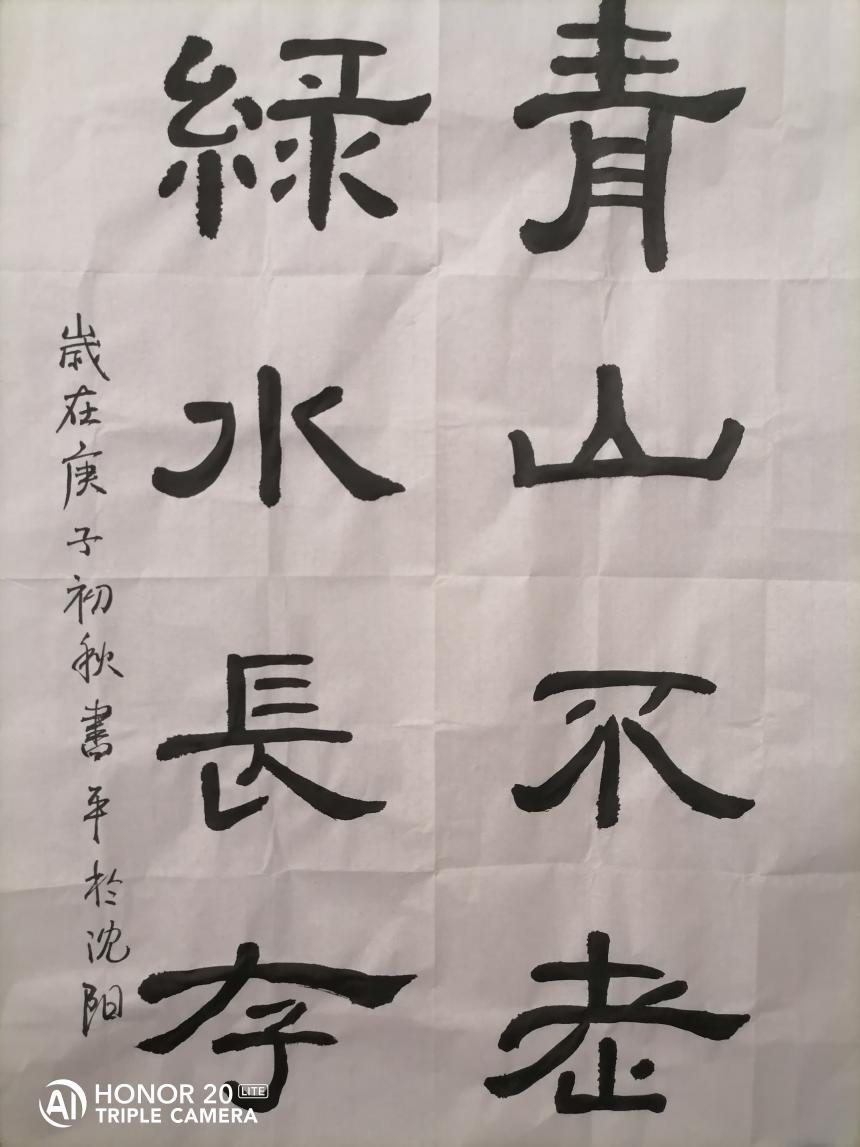 青山不老
綠水長存
歲在庚子初秋書平於沈阳
AI HONOR 20 LITE
TRIPLE CAMERA